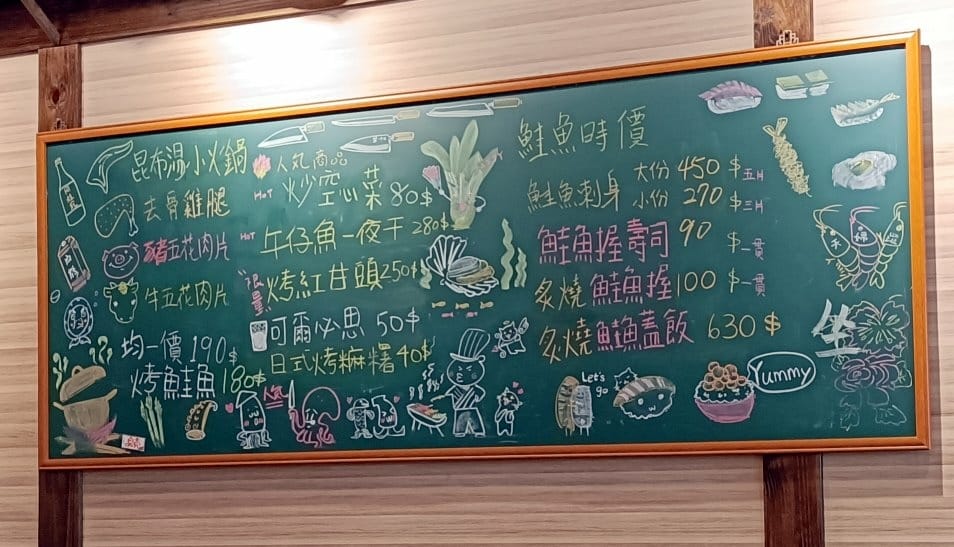 昆布湯小火鍋
去骨雞腿
豬五花肉片
牛五花肉片
均一價190$
烤鮭魚180$
人気商品
HOT 炒空心菜80$
HOT 午仔魚一夜干280$
"限量" 烤紅甘頭250$
可爾必思50$
日式烤麻糬40$
人気
鮭魚時價
鮭魚刺身 大份450$五片
小份270$三片
鮭魚握壽司90$一貫
炙燒鮭魚握100$一貫
炙燒鮭魚蓋飯630$
Let's
go
Yummy